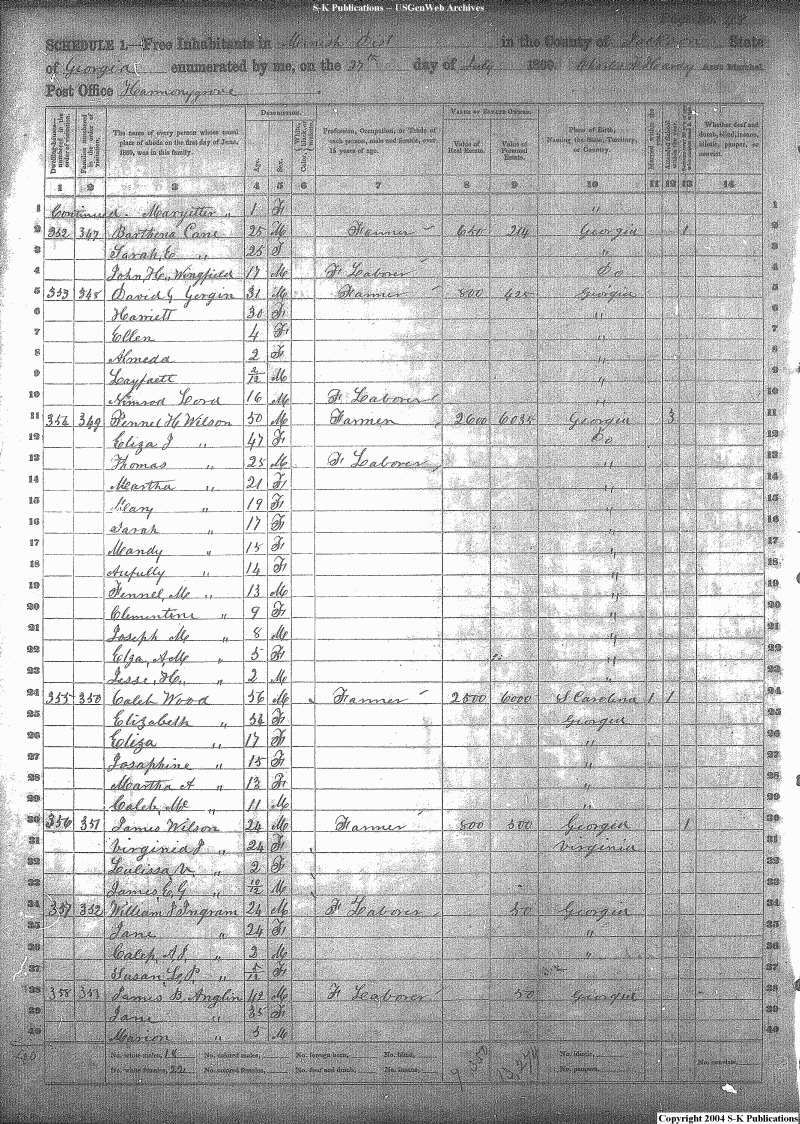 S-K Publications – USGenWeb Archives
Page No. 48
SCHEDULE 1.—Free Inhabitants in Minish Dist in the County of Jackson State
of Georgia enumerated by me, on the 27th day of July 1860. Charles Hardy Ass't Marshal.
Post Office Harmonygrove
DESCRIPTION. VALUE OF ESTATE OWNED.
Dwelling-houses— numbered in the order of visitation. Families numbered in the order of visitation. The name of every person whose usual place of abode on the first day of June, 1860, was in this family. Age. Sex. Color, Profession, Occupation, or Trade of each person, male and female, over 15 years of age. Value of Real Estate. Value of Personal Estate. Place of Birth, Naming the State, Territory, or Country. Married within the year. Whether deaf and dumb, blind, insane, idiotic, pauper, or convict.
1 2 3 4 5 6 7 8 9 10 11 12 13 14
1 Continued. Maryetter " 1 F " 1
2 352 347 Barthena Cane 25 M Farmer 650 214 Georgia 1 2
3 Sarah, E " 25 F " 3
4 John, H., Wingfield 17 M F Laborer Do 4
5 353 348 David G Gorgin 31 M Farmer 800 425 Georgia 5
6 Harriett 30 F " 6
7 Ellen 4 F " 7
8 Almeda 2 F " 8
9 Layfaett 2/12 M " 9
10 Nimrod Lord 16 M F Laborer " 10
11 354 349 Fennel H Wilson 50 M Farmer 2600 6035 Georgia 3 11
12 Eliza J " 47 F Do 12
13 Thomas " 25 M F Laborer " 13
14 Martha " 21 F " 14
15 Mary " 19 F " 15
16 Sarah " 17 F " 16
17 Mandy " 15 F " 17
18 Aufully " 14 F " 18
19 Fennel, M " 13 M " 19
20 Clementine " 9 F " 20
21 Joseph M " 8 M " 21
22 Elza, A M " 5 F " 22
23 Jesse, H., " 2 M " 23
24 355 350 Caleb Wood 56 M Farmer 2500 6000 S Carolina 1 1 24
25 Elizabeth " 54 F Georgia 25
26 Eliza " 17 F " 26
27 Josaphine " 15 F " 27
28 Martha A " 13 F " 28
29 Caleb, Mc " 11 M " 29
30 356 351 James Wilson 24 M Farmer 800 500 Georgia 1 30
31 Virginia J " 24 F Virginia 31
32 Lulissa, V " 2 F 32
33 James, E G " 10/12 M 33
34 357 352 William J Ingram 24 M F Laborer 50 Georgia 34
35 Jane " 24 F " 35
36 Caleb, A J, " 2 M " 36
37 Susan, L, P, " 5/12 F 37
38 358 353 James B, Anglin 42 M F Laborer 50 Georgia 38
39 Jane " 35 F 39
40 Marion " 5 M 40
No. white males, 18 No. colored males, No. foreign born, No. blind, No. idiotic,
No. white females, 22 No. colored females, No. deaf and dumb, No. insane, No. paupers, No. convicts,
13,274
Copyright 2004 S-K Publications